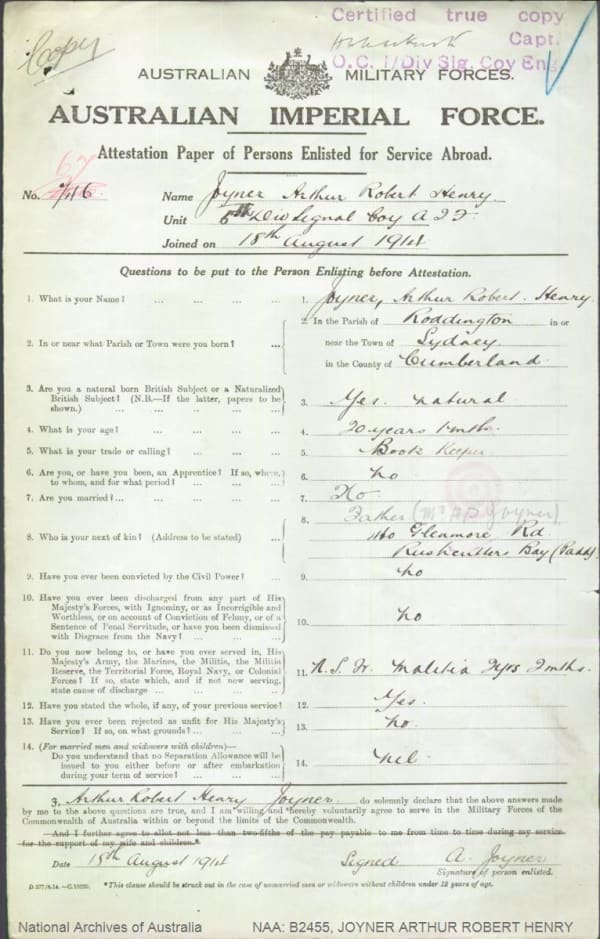 Certified true copy
Copy
Capt.
O.C. 1/Div Sig. Coy Eng
AUSTRALIAN MILITARY FORCES.
AUSTRALIAN IMPERIAL FORCE.
Attestation Paper of Persons Enlisted for Service Abroad.
67
No. Name Joyner Arthur Robert Henry.
Unit Div Signal Coy A I F.
Joined on 18th August 1914
Questions to be put to the Person Enlisting before Attestation.
1. What is your Name? ... ... ... ... 1. Joyner, Arthur Robert. Henry
2. In or near what Parish or Town were you born? ... 2. In the Parish of Roddington in or
near the Town of Sydney
in the County of Cumberland
3. Are you a natural born British Subject or a Naturalized
British Subject? (N.B.—If the latter, papers to be
shown.) ... ... ... ... ... 3. Yes. natural
4. What is your age? ... ... ... ... 4. 20 years mths.
5. What is your trade or calling? ... ... ... 5. Book Keeper
6. Are you, or have you been, an Apprentice? If so, where,
to whom, and for what period? ... ... ... 6. No
7. Are you married? ... ... ... ... ... 7. No.
8. Who is your next of kin? (Address to be stated) ... 8. Father (Joyner)
Glenmore Rd
Rushcutters Bay (Padd)
9. Have you ever been convicted by the Civil Power? ... 9. No
10. Have you ever been discharged from any part of His
Majesty's Forces, with Ignominy, or as Incorrigible and
Worthless, or on account of Conviction of Felony, or of a
Sentence of Penal Servitude, or have you been dismissed
with Disgrace from the Navy? ... ... ... 10. No
11. Do you now belong to, or have you ever served in, His
Majesty's Army, the Marines, the Militia, the Militia
Reserve, the Territorial Force, Royal Navy, or Colonial
Forces? If so, state which, and if not now serving,
state cause of discharge ... ... ... ... 11. N. S. W. Malitia mths.
12. Have you stated the whole, if any, of your previous service? 12. Yes.
13. Have you ever been rejected as unfit for His Majesty's
Service? If so, on what grounds? ... ... ... 13. No.
14. (For married men and widowers with children)—
Do you understand that no Separation Allowance will be
issued to you either before or after embarkation
during your term of service? ... ... ... 14. Nil
I, Arthur Robert Henry Joyner do solemnly declare that the above answers made
by me to the above questions are true, and I am willing and hereby voluntarily agree to serve in the Military Forces of the
Commonwealth of Australia within or beyond the limits of the Commonwealth.
And I further agree to allot not less than two-fifths of the pay payable to me from time to time during my service
for the support of my wife and children.*
Date 18th August 1914 Signed A. Joyner
Signature of person enlisted.
D.577/8.14.—C.10233. *This clause should be struck out in the case of unmarried men or widowers without children under 18 years of age.
National Archives of Australia NAA: B2455, JOYNER ARTHUR ROBERT HENRY